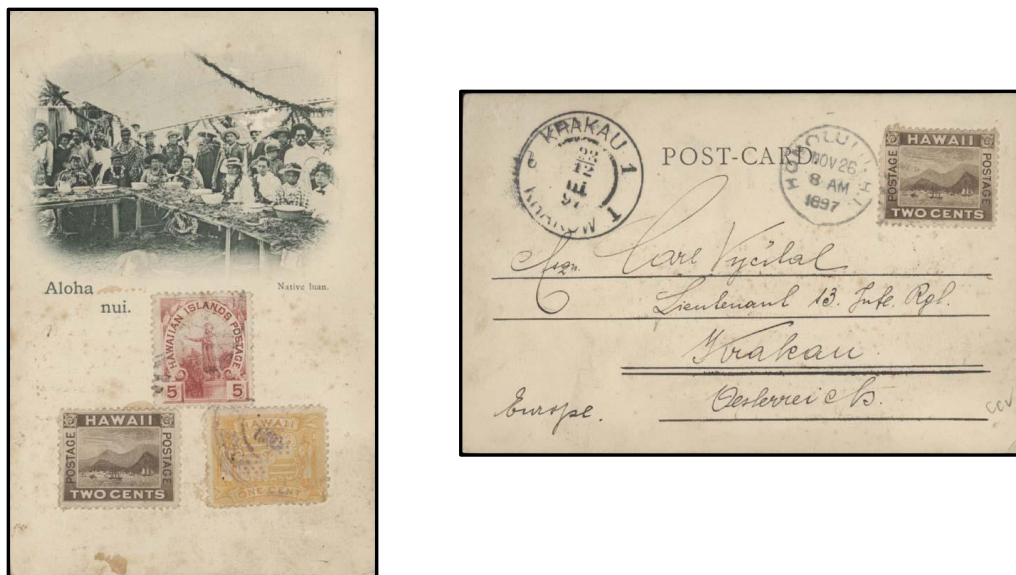 Aloha
nui.
Native luau.
HAWAIIAN ISLANDS POSTAGE
5 5
HAWAII
POSTAGE POSTAGE
TWO CENTS
HAWAII
ONE CENT
KRAKAU 1
23
12
97
POST-CARD
HONOLULU H.I.
NOV 26
8 AM
1897
HAWAII
POSTAGE POSTAGE
TWO CENTS
Carl Vyčital
Lieutenant 13. Inft. Rgt.
Krakau
Oesterreich.
Europe.